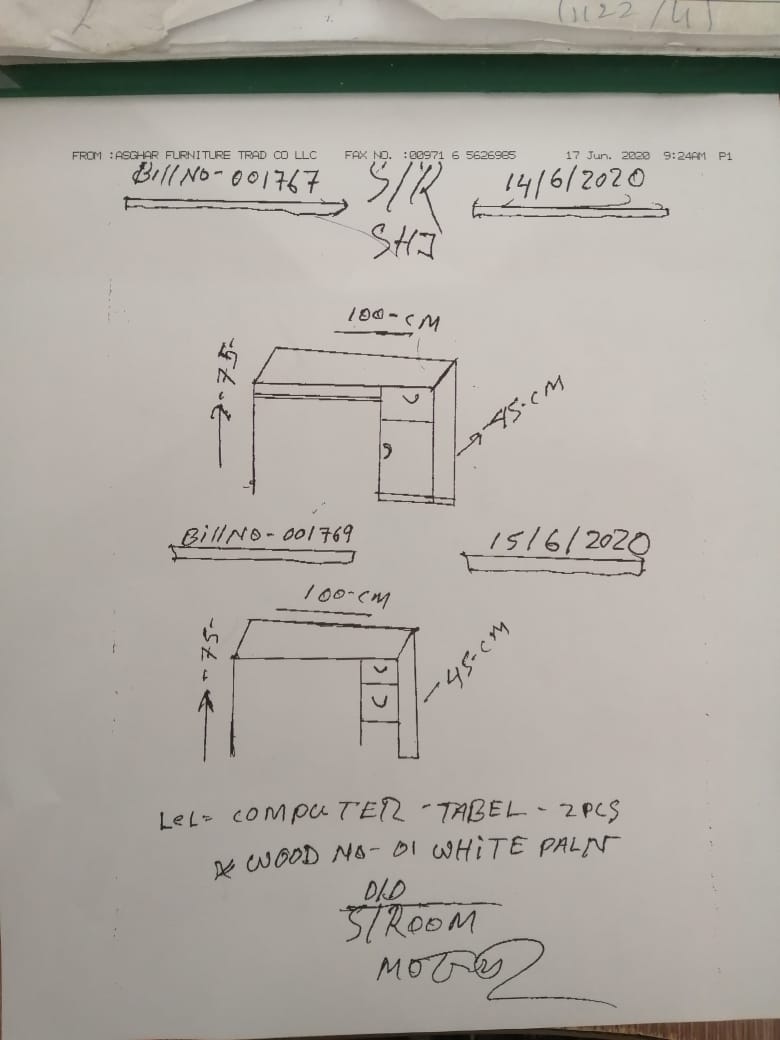 FROM :ASGHAR FURNITURE TRAD CO LLC FAX NO. :00971 6 5626985 17 Jun. 2020 9:24AM P1
Bill No-001767 S/R 14/6/2020
SHJ
100-CM
75-
45-CM
Bill No-001769 15/6/2020
100-CM
-75-
45-CM
LeL= COMPUTER -TABEL - 2PCS
WOOD No-01 WHITE PALN
D/D
S/ROOM